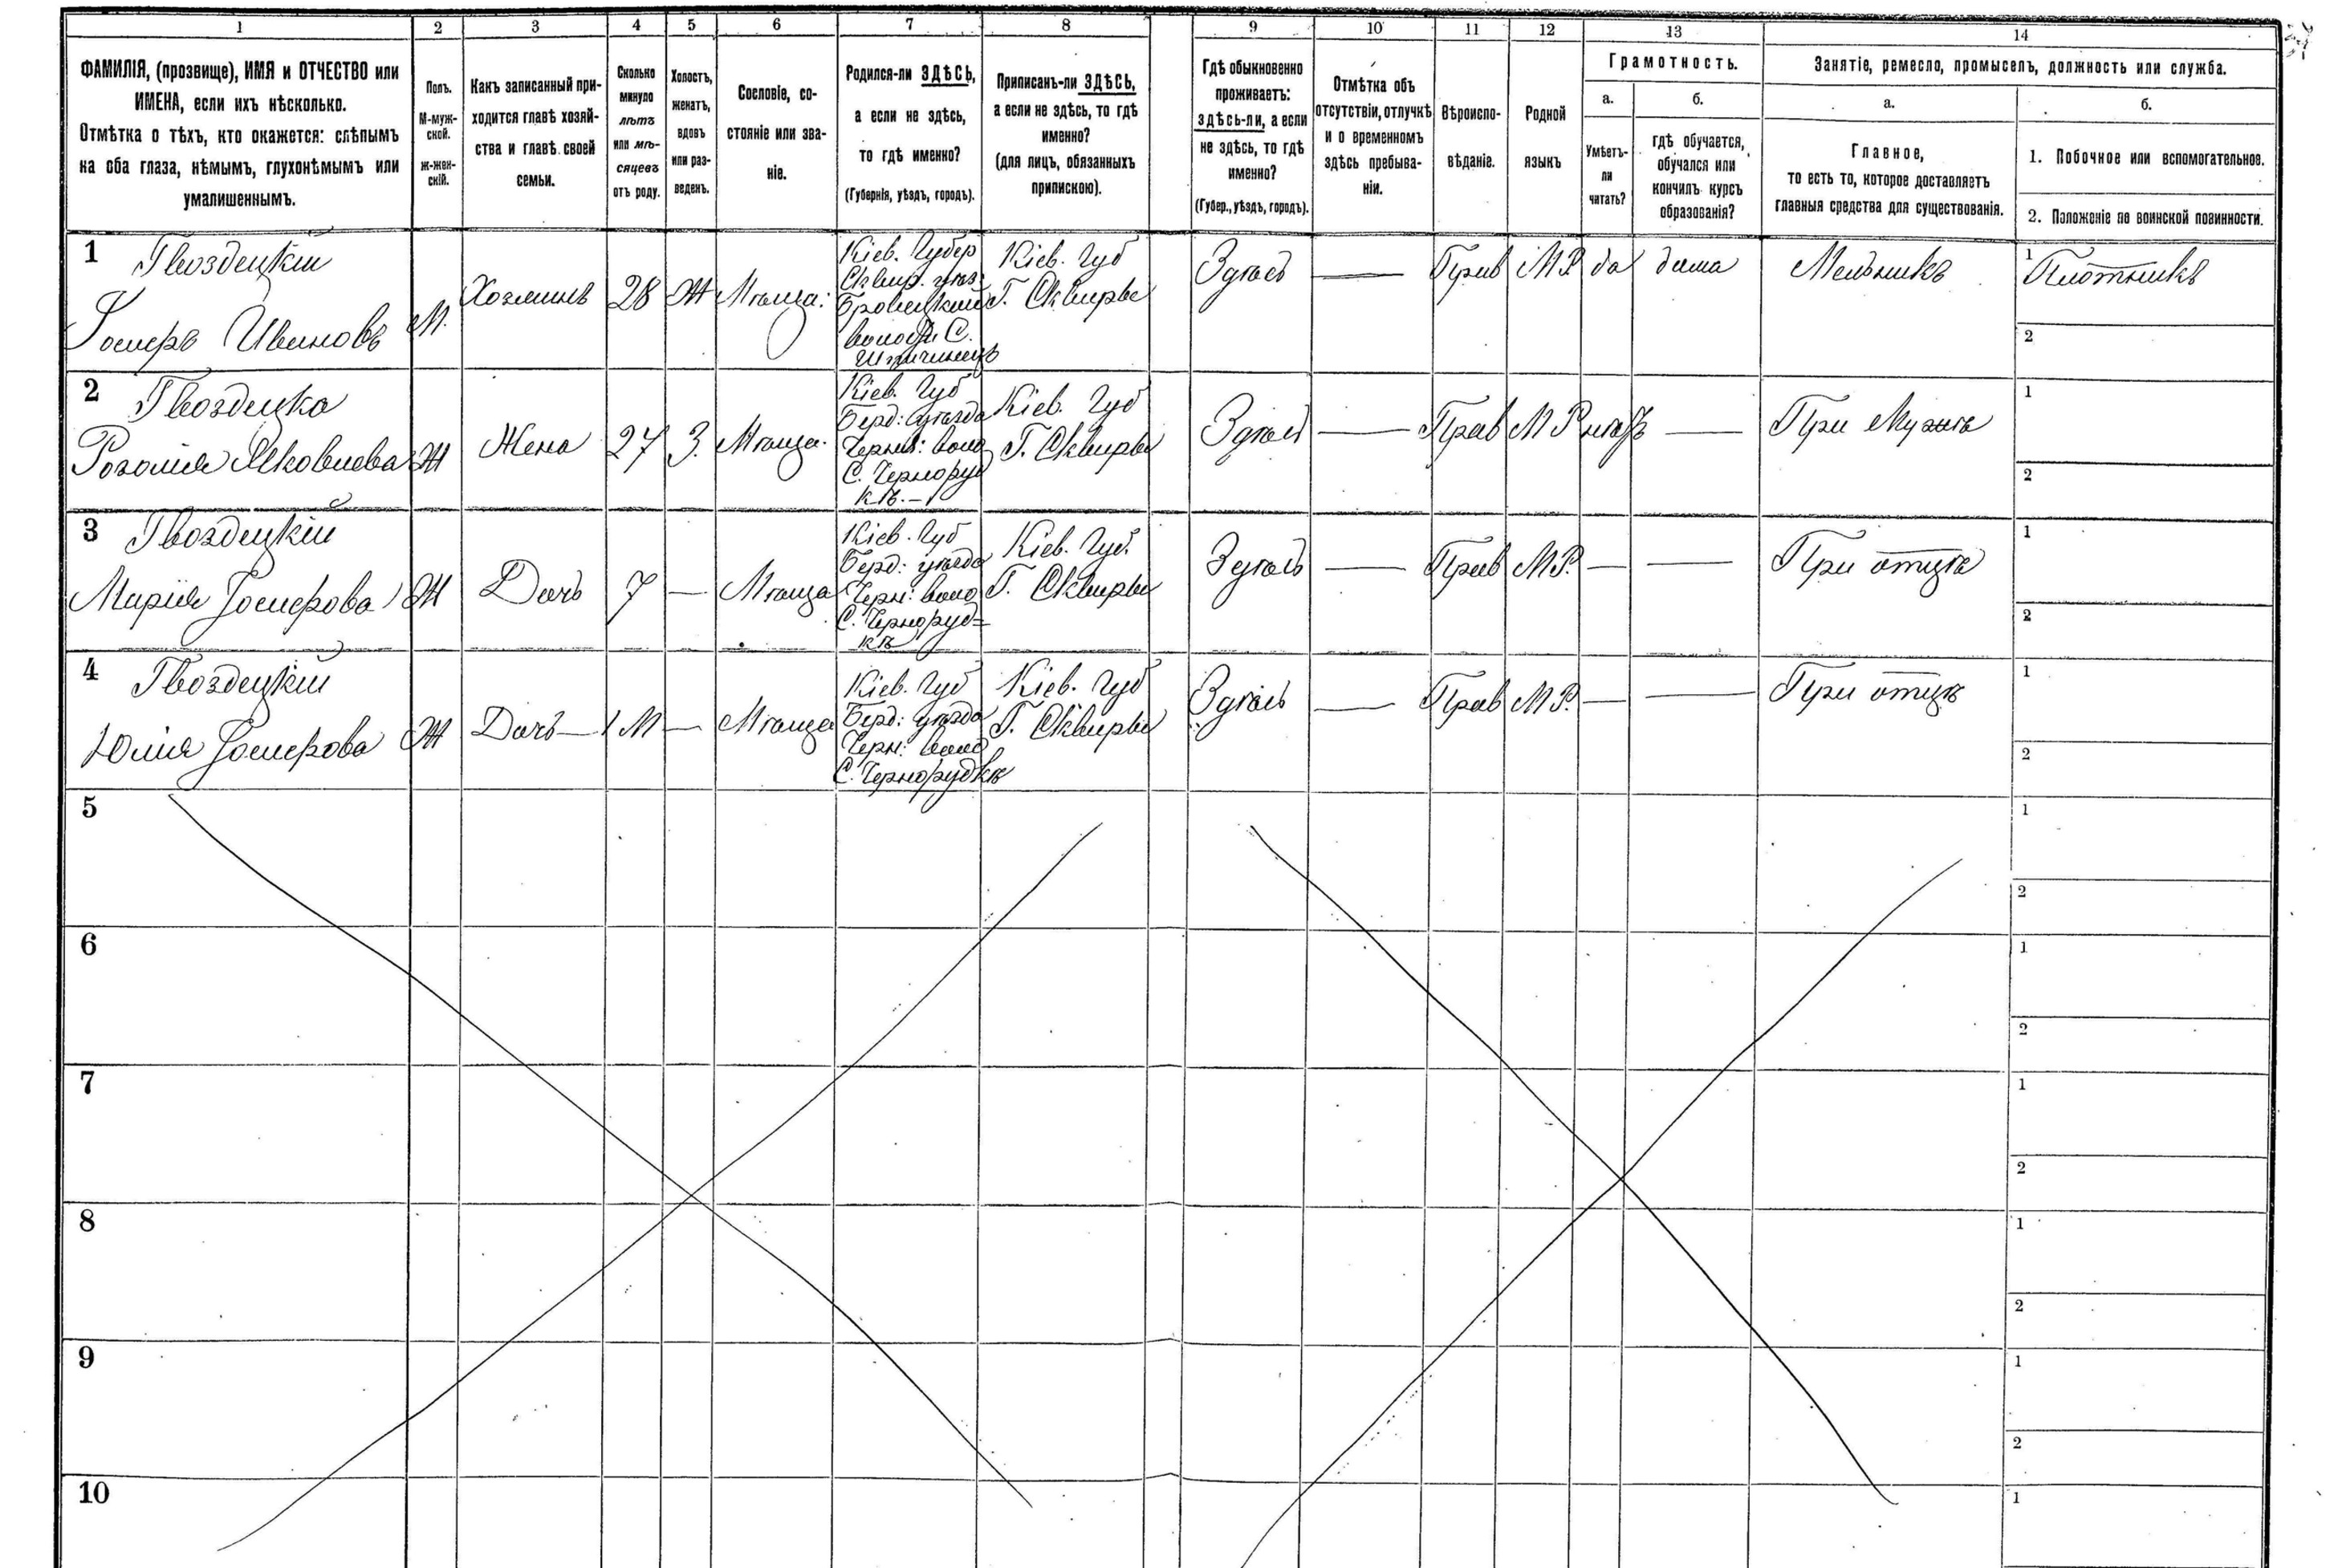 1 2 3 4 5 6 7 8 9 10 11 12 13 14
ФАМИЛІЯ, (прозвище), ИМЯ и ОТЧЕСТВО или
ИМЕНА, если ихъ нѣсколько.
Отмѣтка о тѣхъ, кто окажется: слѣпымъ
на оба глаза, нѣмымъ, глухонѣмымъ или
умалишеннымъ.
Полъ.
М-муж-
ской.
ж-жен-
скій.
Какъ записанный при-
ходится главѣ хозяй-
ства и главѣ своей
семьи.
Сколько
минуло
лѣтъ
или мѣ-
сяцевъ
отъ роду.
Холостъ,
женатъ,
вдовъ
или раз-
веденъ.
Сословіе, со-
стояніе или зва-
ніе.
Родился-ли ЗДѢСЬ,
а если не здѣсь,
то гдѣ именно?
(Губернія, уѣздъ, городъ).
Приписанъ-ли ЗДѢСЬ,
а если не здѣсь, то гдѣ
именно?
(для лицъ, обязанныхъ
припискою).
Гдѣ обыкновенно
проживаетъ:
здѣсь-ли, а если
не здѣсь, то гдѣ
именно?
(Губер., уѣздъ, городъ).
Отмѣтка объ
отсутствіи, отлучкѣ
и о временномъ
здѣсь пребыва-
ніи.
Вѣроиспо-
вѣданіе.
Родной
языкъ
Грамотность.
а.
Умѣетъ-
ли
читать?
б.
гдѣ обучается,
обучался или
кончилъ курсъ
образованія?
Занятіе, ремесло, промыселъ, должность или служба.
а.
Главное,
то есть то, которое доставляетъ
главныя средства для существованія.
б.
1. Побочное или вспомогательное.
2. Положеніе по воинской повинности.
1
Гвоздецкій
Іосифъ Ивановъ
М.
Хозяинъ
28
Ж
Мѣща:
Кіев. Губер
Сквир. уѣз:
С.
Кіев. Губ
Г. Сквиры
Здѣсь
—
Прав
М Р
да
дома
Мельникъ
1
Плотникъ
2
2
Гвоздецка
Розалія Яковлева
Ж
Жена
27
З.
Мѣща.
Кіев. Губ
Берд: уѣзда
Черн: воло
С. Черноруд
кѣ.—
Кіев. Губ
Г. Сквиры
Здѣсь
—
Прав
М Р
нѣтъ
—
При мужѣ
1
2
3
Гвоздецкій
Марія Іосифова
Ж
Дочь
7
—
Мѣща
Кіев. Губ
Берд: уѣзда
Черн: воло
С. Черноруд=
кѣ
Кіев. Губ.
Г. Сквиры
Здѣсь
—
Прав
М Р.
—
—
При отцѣ
1
2
4
Гвоздецкій
Юлія Іосифова
Ж
Дочь
1 М
—
Мѣща
Кіев. Губ
Берд: уѣзда
Черн: воло
С. Чернорудкѣ
Кіев. Губ
Г. Сквиры
Здѣсь
—
Прав
М Р.
—
—
При отцѣ
1
2
5
1
2
6
1
2
7
1
2
8
1
2
9
1
2
10
1